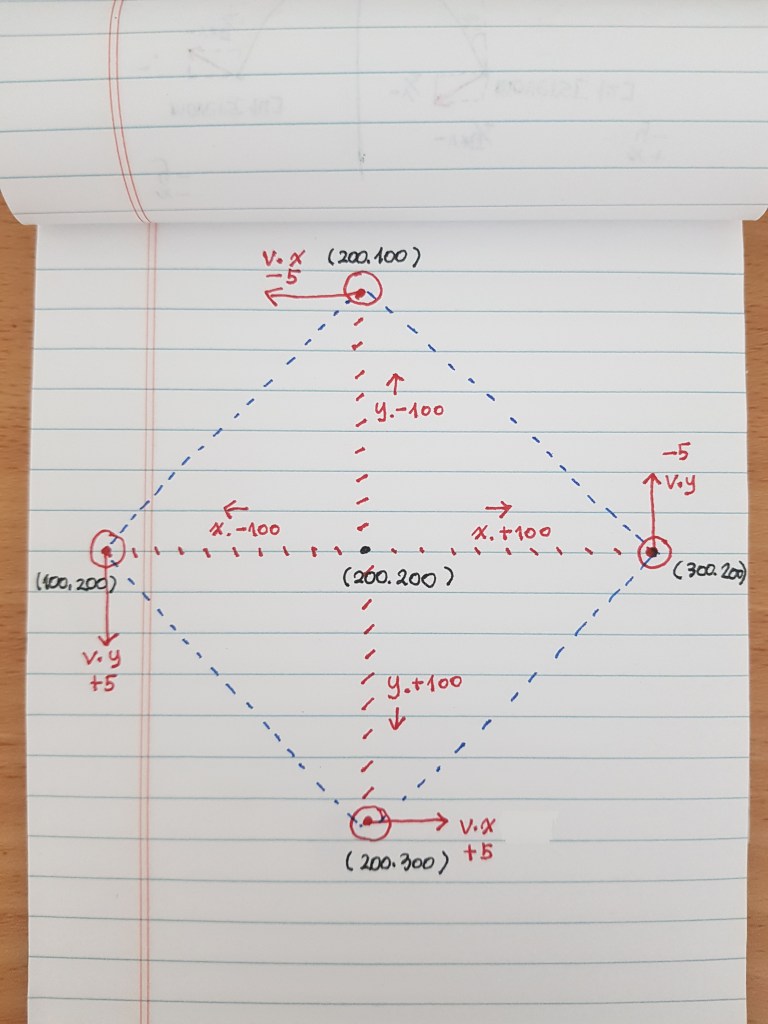 v.x (200.100)
-5
y.-100
-5
v.y
x.-100 x.+100
(100,200) (200.200) (300.200)
v.y
+5
y.+100
v.x
(200.300) +5